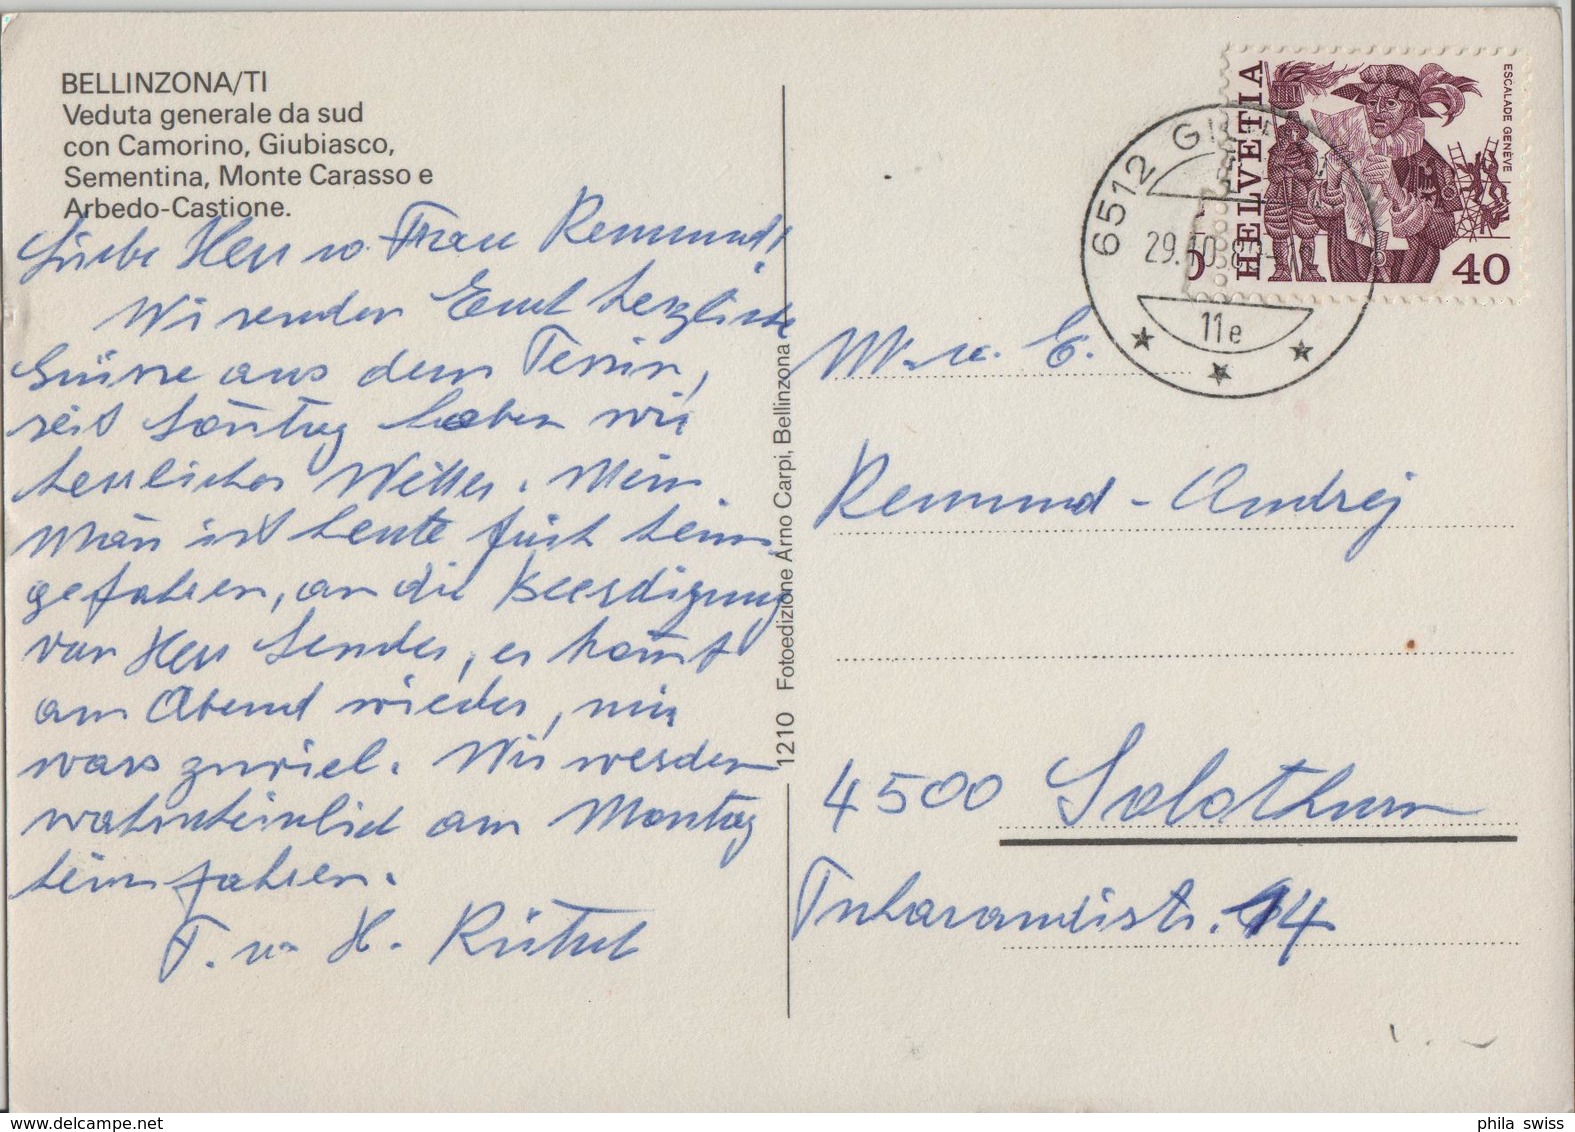 BELLINZONA/TI
Veduta generale da sud
con Camorino, Giubiasco,
Sementina, Monte Carasso e
Arbedo-Castione.
Liebe Herr u. Frau Remund!
Wir senden Euch herzliche
Grüsse aus dem Tessin,
seit Sontag haben wir
herrliches Wetter. Mein
Man ist heute früh heim
gefahren, an die Beerdigung
von Herr Sender, er komt
am Abend wieder, mir
wars zuviel. Wir werden
wahrscheinlich am Montag
heim fahren.
T. u. H.
1210 Fotoedizione Arno Carpi, Bellinzona
HELVETIA
ESCALADE GENÈVE
40
6512
29.10.8
11e
M. u. E.
Remund-Andrej
4500 Solothurn
14
phila swiss